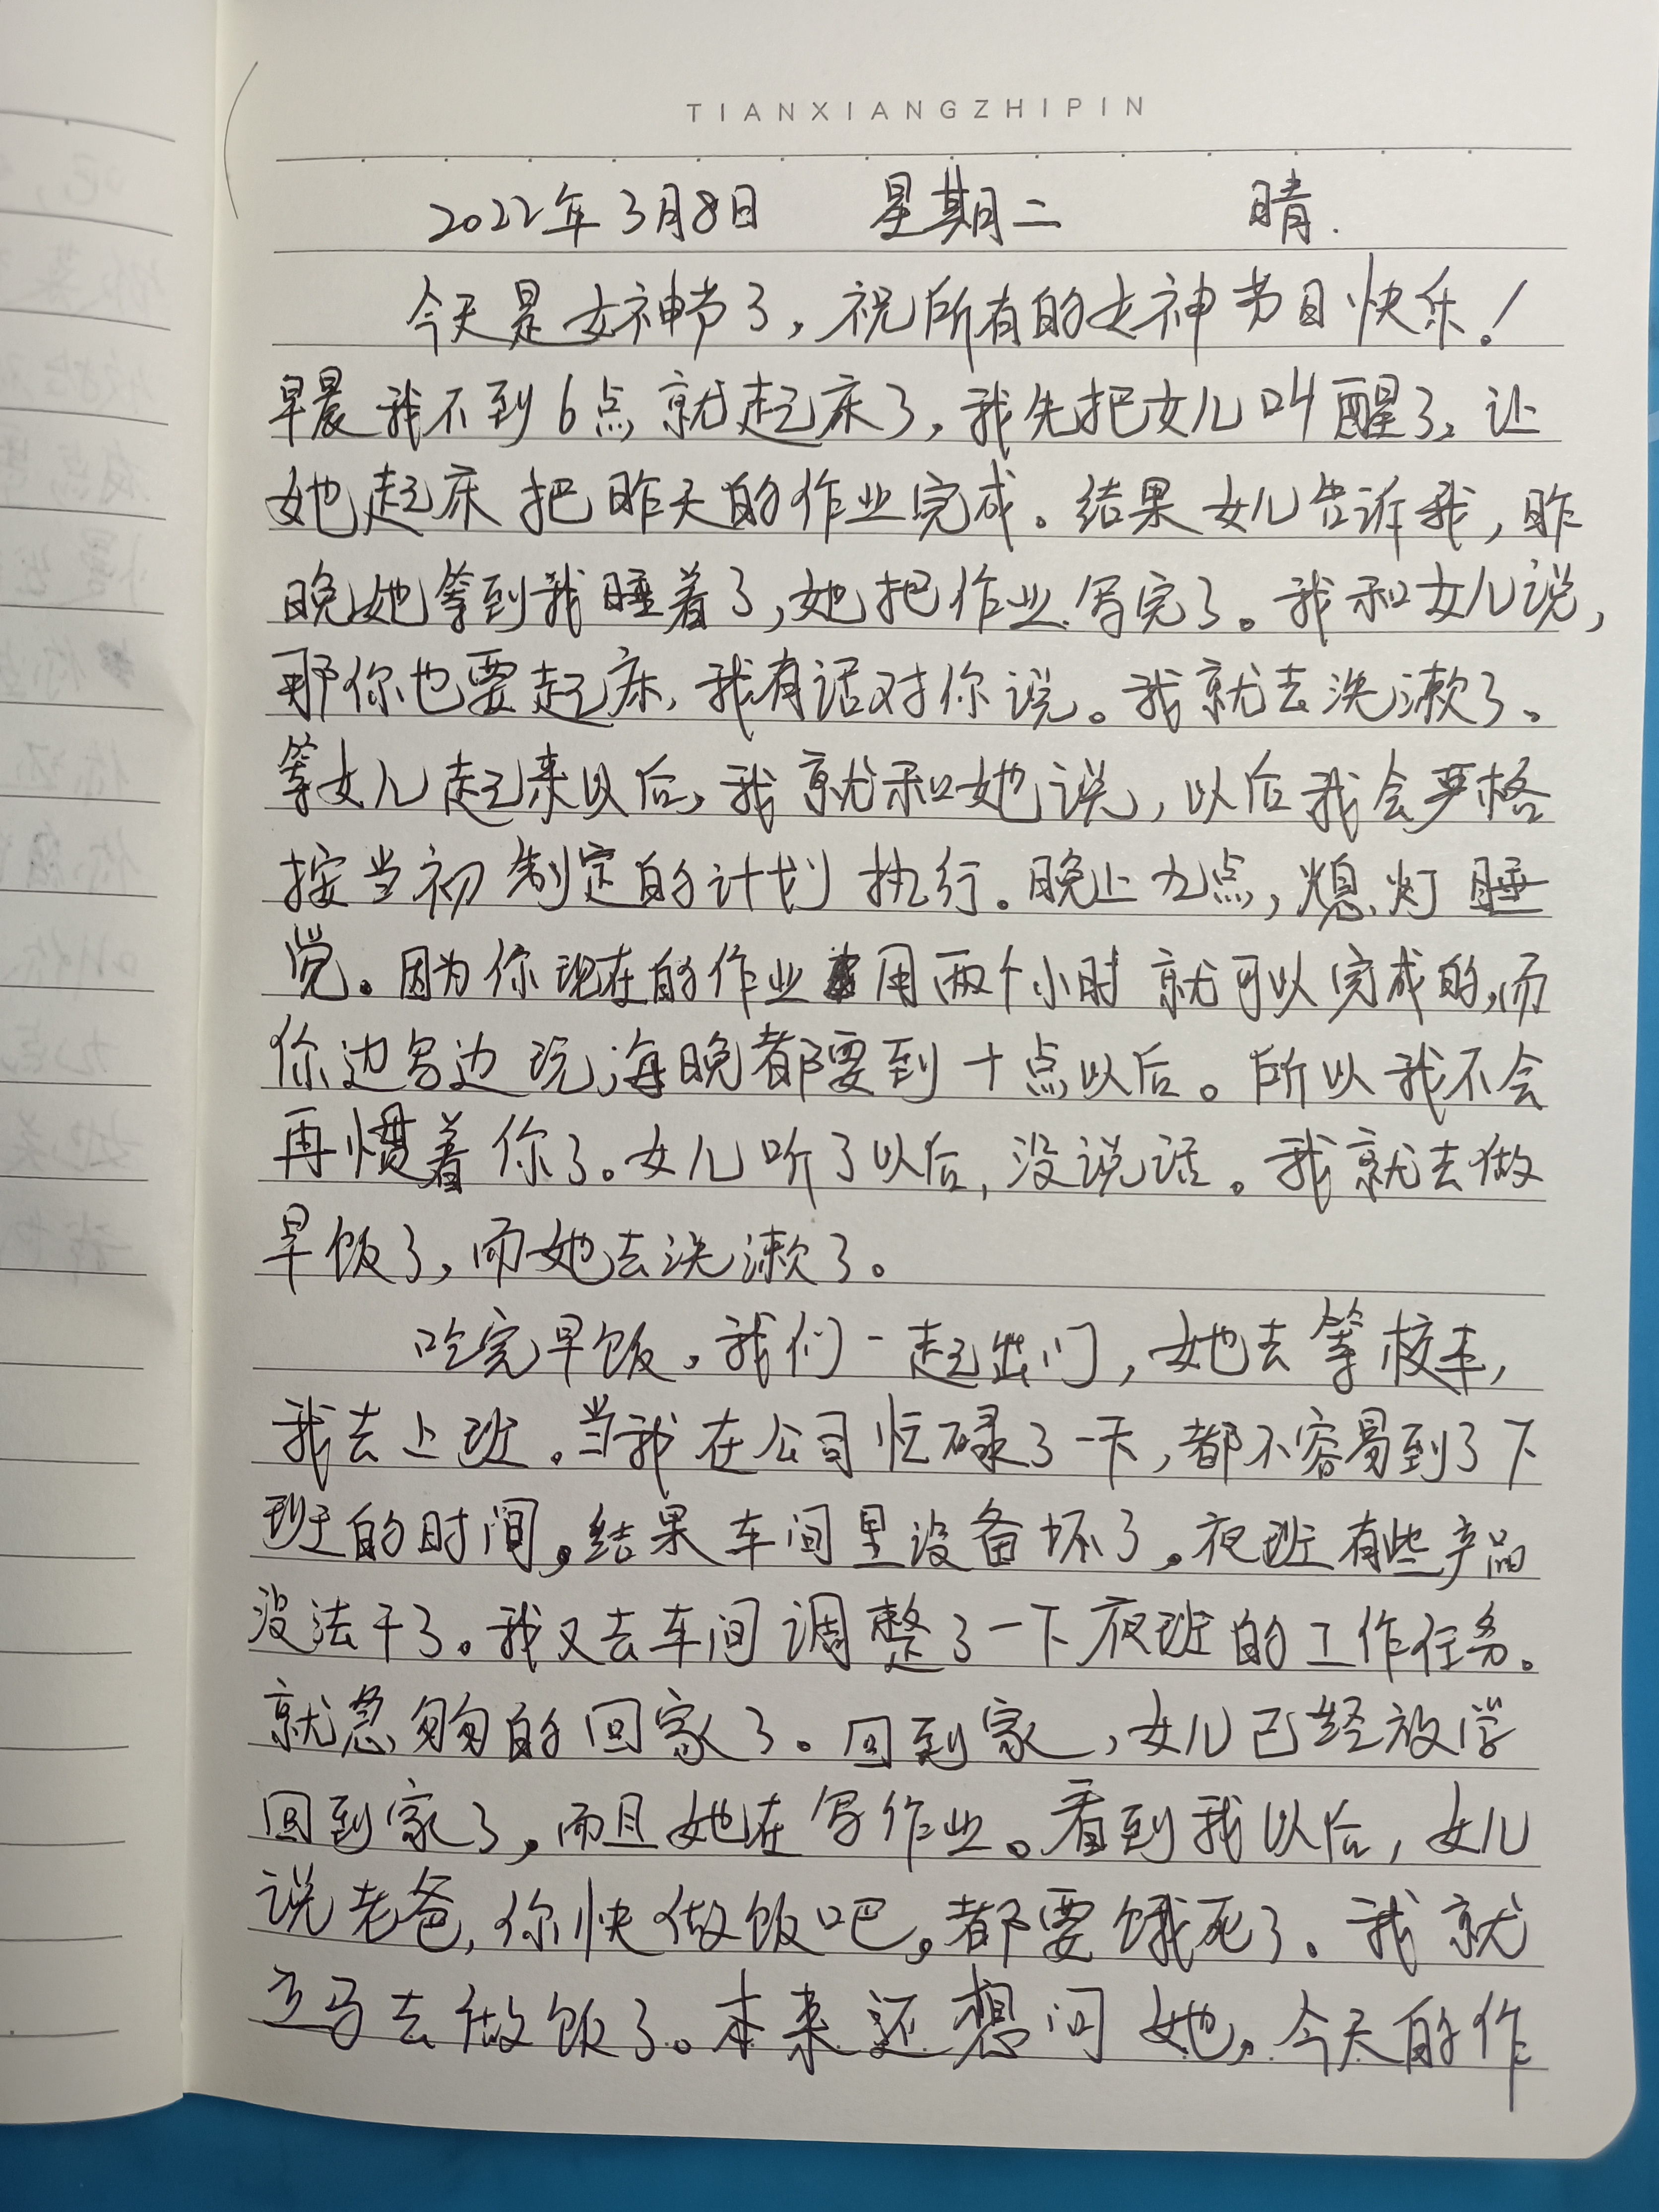 TIANXIANGZHIPIN
2022年3月8日 星期二 晴.
今天是女神节了,祝所有的女神节日快乐!
早晨我不到6点就起床了,我先把女儿叫醒了,让
她起床把昨天的作业完成。结果女儿告诉我,昨
晚她等到我睡着了,她把作业写完了。我和女儿说,
那你也要起床,我有话对你说。我就去洗漱了。
等女儿起来以后,我就和她说,以后我会严格
按当初制定的计划执行。晚上九点,熄灯睡
觉。因为你现在的作业用两个小时就可以完成的,而
你边写边玩,每晚都要到十点以后。所以我不会
再惯着你了。女儿听了以后,没说话。我就去做
早饭了,而她去洗漱了。
吃完早饭。我们一起出门,她去等校车,
我去上班。当我在公司忙碌了一天,都不容易到了下
班的时间。结果车间里设备坏了。夜班有些产品
没法干了。我又去车间调整了一下夜班的工作任务。
就急匆匆的回家了。回到家,女儿已经放学
回到家了,而且她在写作业。看到我以后,女儿
说老爸,你快做饭吧。都要饿死了。我就
立马去做饭了。本来还想问她。今天的作